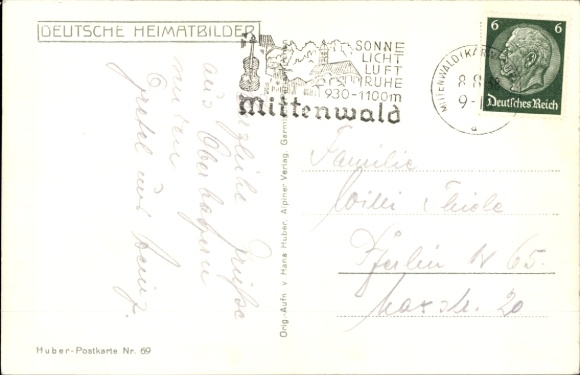 DEUTSCHE HEIMATBILDER
SONNE
LICHT
LUFT
RUHE
930-1100m
Mittenwald
MITTENWALD (KAR
8.8
9-1
a
6 6
Deutsches Reich
Herzliche Grüße
aus Oberhagen
Gretel und Heinz.
Familie
Willi Thiele
Berlin N 65.
Maxstr. 20
Orig.-Aufn. v. Hans Huber, Alpiner Verlag, Garm
Huber-Postkarte Nr. 69